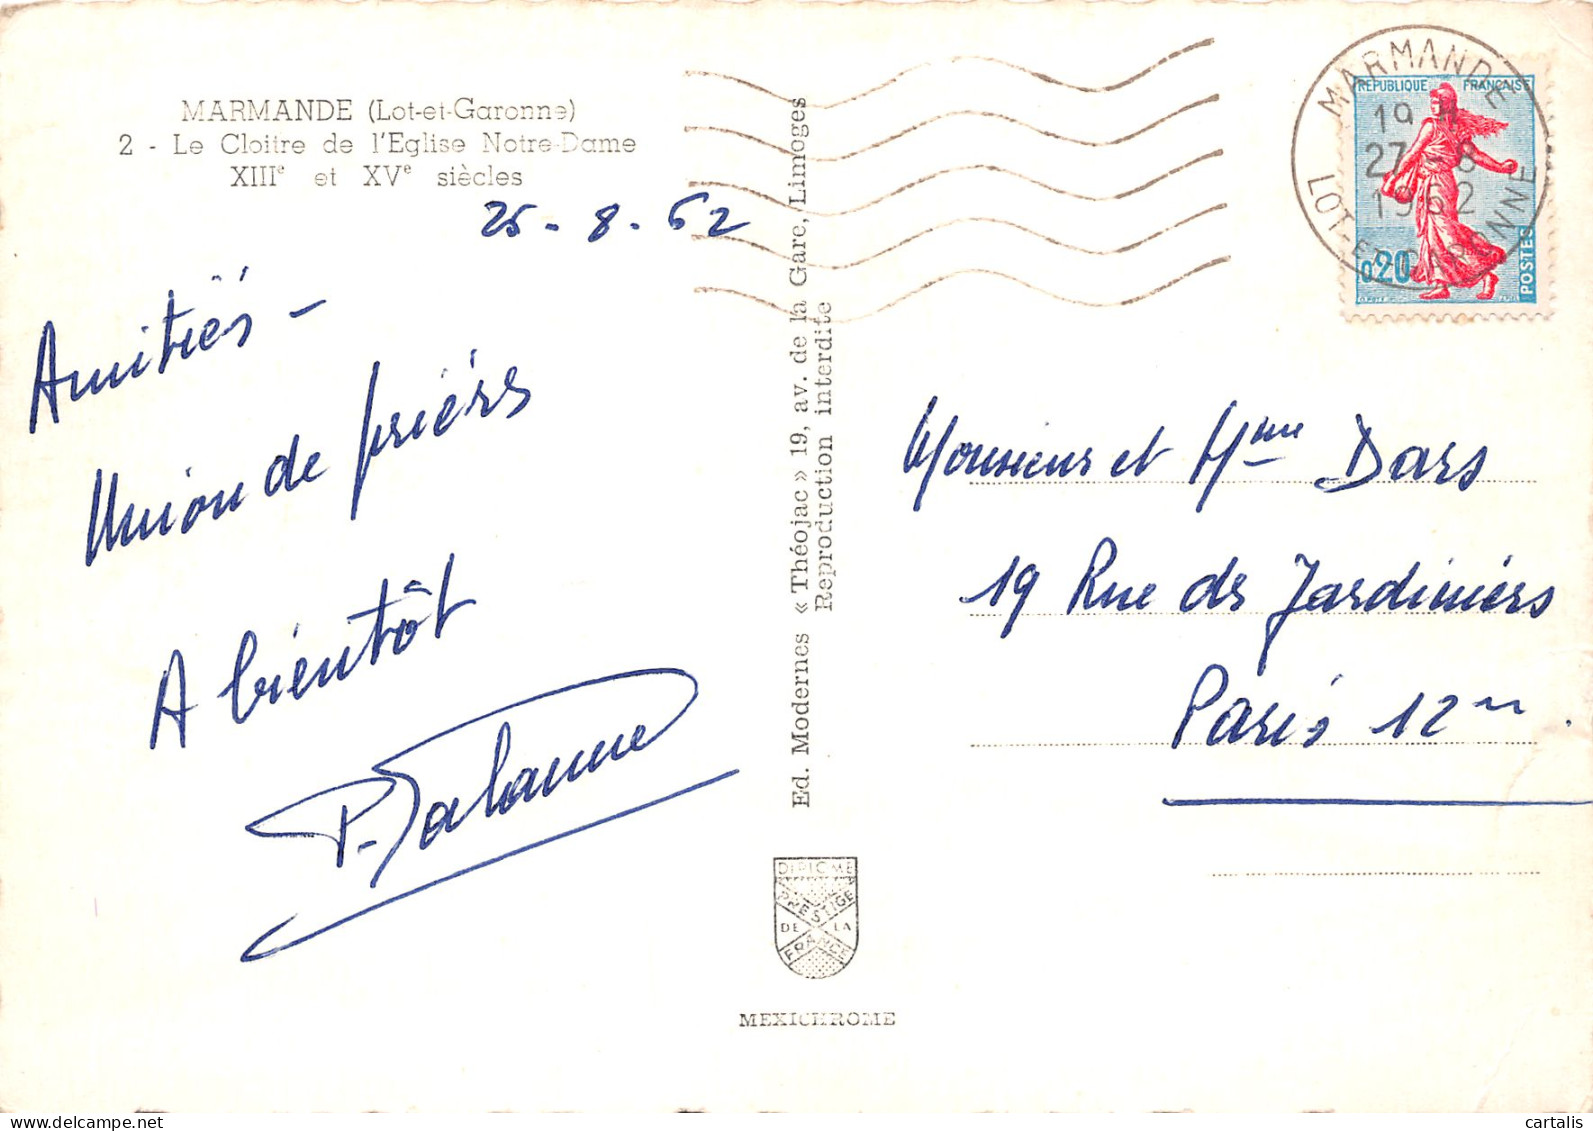 MARMANDE (Lot-et-Garonne)
2 - Le Cloitre de l'Eglise Notre-Dame
XIIIe et XVe siècles
25 - 8 - 62
Amitiés -
Union de priérs
A bientôt
Ed. Modernes « Théojac » 19, av. de la Gare, Limoges
Reproduction interdite
DIPLOME
PRESTIGE
DE LA
FRANCE
MEXICHROME
MARMANDE
19 H
27 - 8
1962
LOT-ET-GARONNE
REPUBLIQUE FRANÇAISE
0,20
POSTES
Monsieur et Mme Dars
19 Rue des Jardiniers
Paris 12
cartalis DELCAMPE.NET